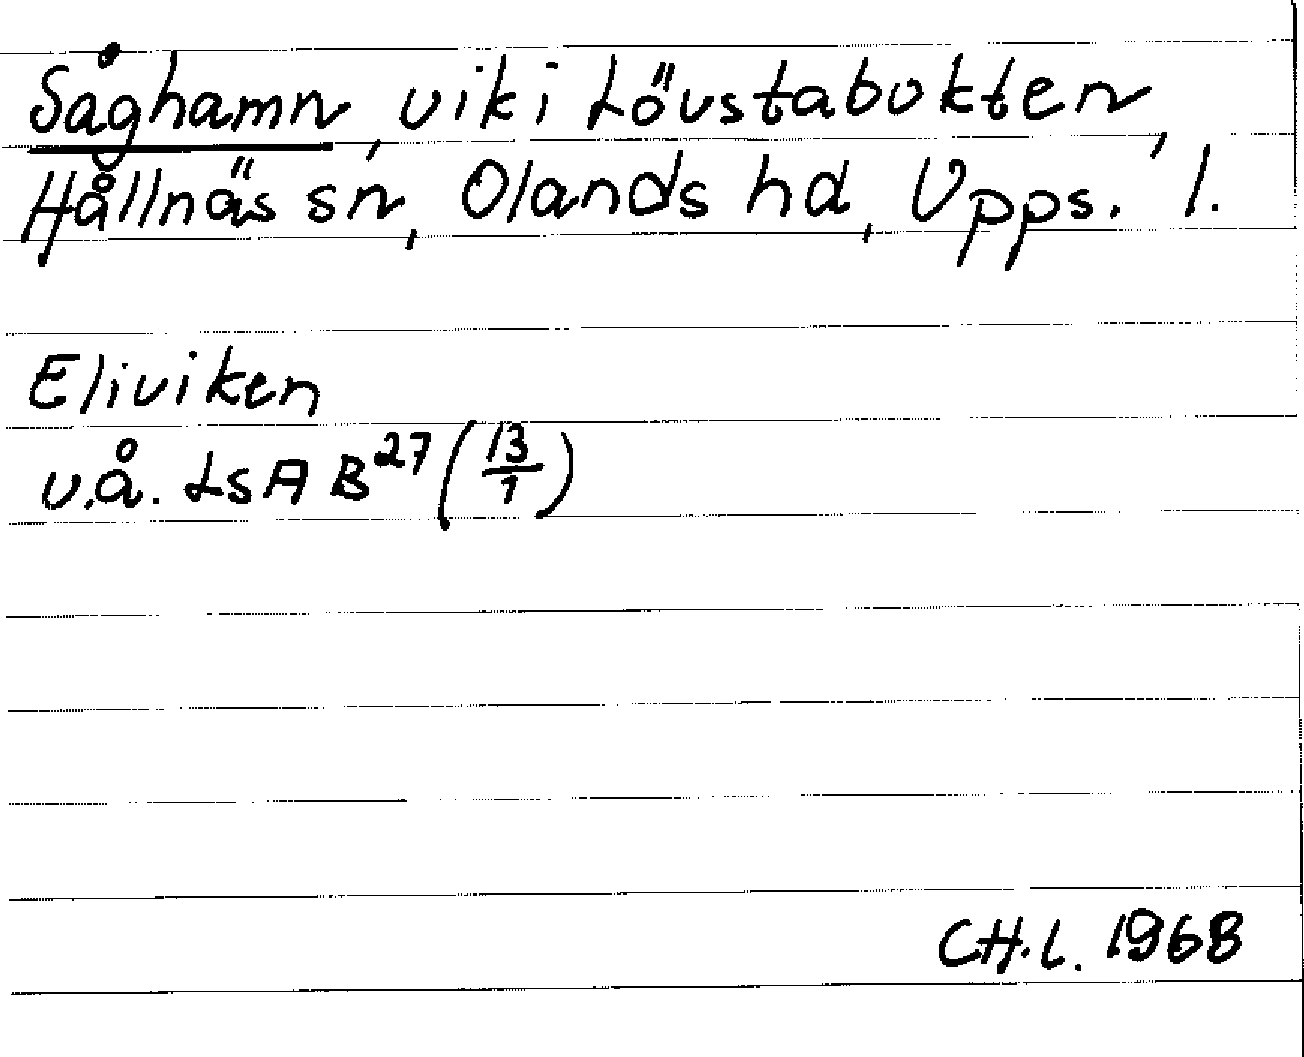 Såghamn, vik i Lövstabukten,
Hållnäs sn, Olands hd, Upps. l.
Eliviken
u.å. LSA B²⁷ (13/1)
CH.L. 1968